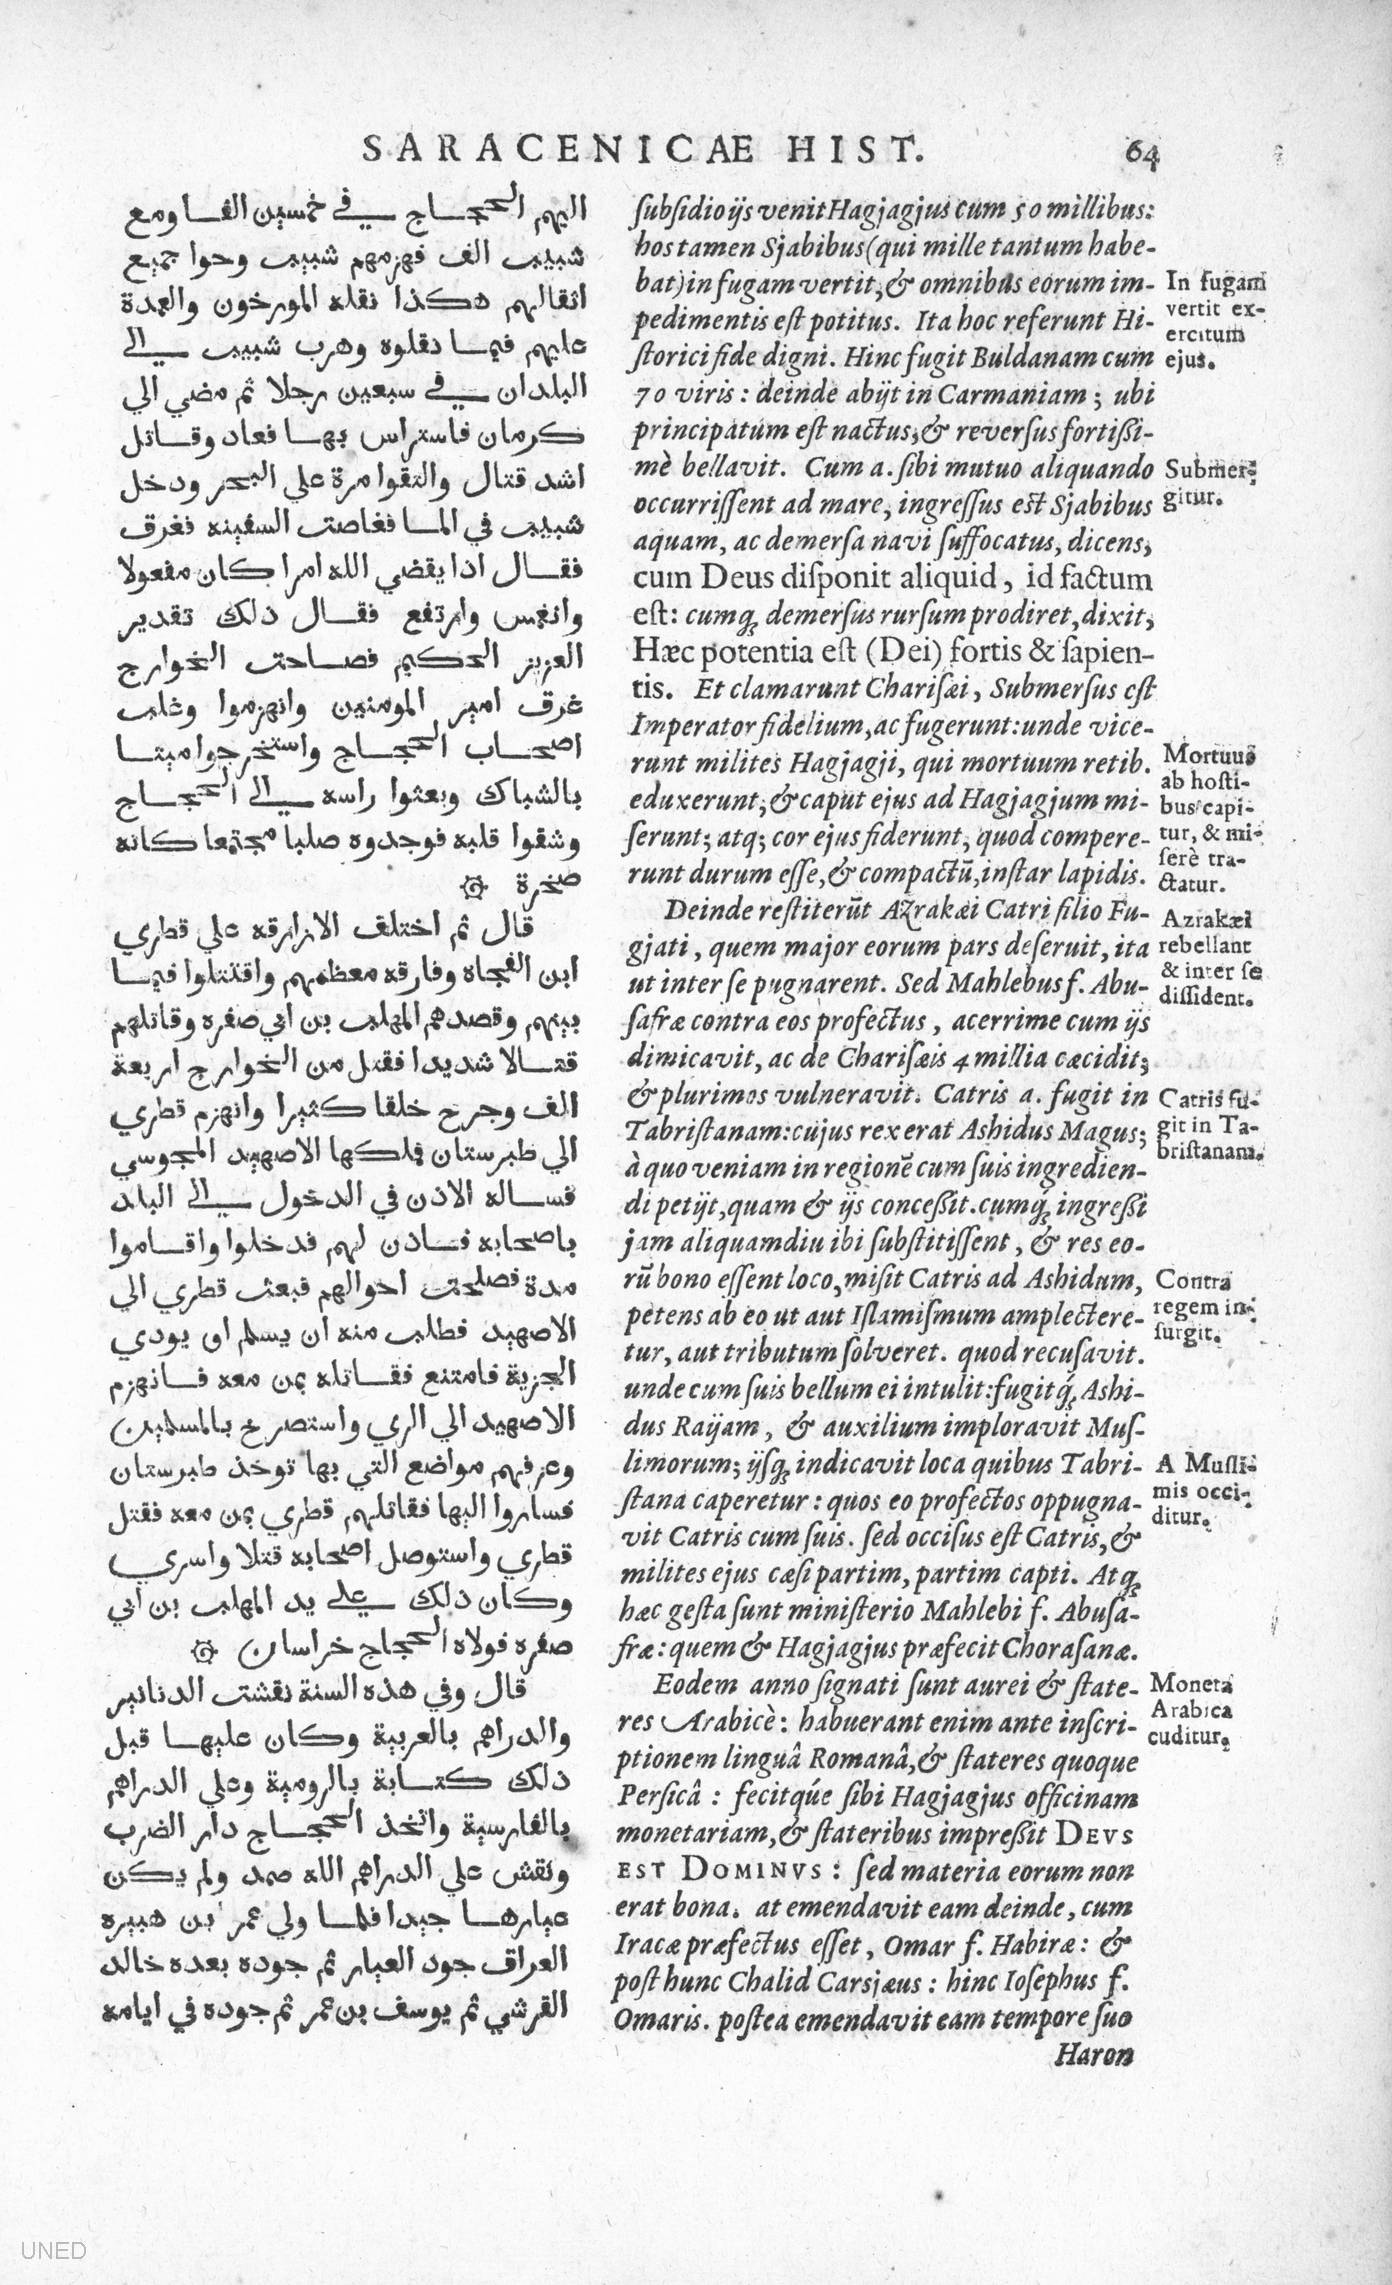 SARACENICÆ HIST. 64
اليهم الحجاج في خمسين الفا ومع
شبيب الف فهزمهم شبيب وحوا جميع
اثقالهم هكذا نقله المورخون والعمدة
عليهم فيما نقلوه وهرب شبيب الي
البلدان في سبعين رجلا ثم مضي الي
كرمان فاستراس بها فعاد وقاتل
اشد قتال والتقوا مرة علي البحر ودخل
شبيب في الما فغاصت السفينه فغرق
فقال اذا يقضي الله امرا كان مفعولا
وانغمس وارتفع فقال ذلك تقدير
العزيز الحكيم فصاحت الخوارج
غرق امير المومنين وانهزموا وغلب
اصحاب الحجاج واستخرجوا ميتا
بالشباك وبعثوا راسه الي الحجاج
وشقوا قلبه فوجدوه صلبا مجتمعا كانه
صخرة
قال ثم اختلف الازارقه علي قطري
ابن الفجاه وفارقه معظمهم واقتتلوا فيما
بينهم وقصدهم المهلب بن ابي صفره وقاتلهم
قتالا شديدا فقتل من الخوارج اربعة
الف وجرح خلقا كثيرا وانهزم قطري
الي طبرستان فملكها الاصهبد المجوسي
فساله الاذن في الدخول الي البلد
باصحابه فاذن لهم فدخلوا واقاموا
مدة فصلحت احوالهم فبعث قطري الي
الاصهبد فطلب منه ان يسلم او يودي
الجزية فامتنع فقاتله بمن معه فانهزم
الاصهبد الي الري واستصرخ بالمسلمين
وعرفهم مواضع التي بها توخذ طبرستان
فساروا اليها فقاتلهم قطري بمن معه فقتل
قطري واستوصل اصحابه قتلا واسري
وكان ذلك علي يد المهلب بن ابي
صفره فولاه الحجاج خراسان
قال وفي هذه السنة نقشت الدنانير
والدراهم بالعربية وكان عليها قبل
ذلك كتابة بالرومية وعلي الدراهم
بالفارسية واتخذ الحجاج دار الضرب
ونقش علي الدراهم الله صمد ولم يكن
عيارها جيدا فلما ولي عمر بن هبيره
العراق جود العيار ثم جوده بعده خالد
القرشي ثم يوسف بن عمر ثم جوده في ايامه
ſubſidio ijs venit Hagjagjus cum 50 millibus:
hos tamen Sjabibus (qui mille tantum habe-
bat) in fugam vertit, & omnibus eorum im-
pedimentis eſt potitus. Ita hoc referunt Hi-
ſtorici fide digni. Hinc fugit Buldanam cum
70 viris: deinde abijt in Carmaniam; ubi
principatum eſt nactus, & reverſus fortißi-
mè bellavit. Cum a. ſibi mutuo aliquando
occurriſſent ad mare, ingreſſus eſt Sjabibus
aquam, ac demerſa navi ſuffocatus, dicens,
cum Deus diſponit aliquid, id factum
est: cumq́; demerſus rurſum prodiret, dixit,
Hæc potentia eſt (Dei) fortis & ſapien-
tis. Et clamarunt Chariſæi, Submerſus eſt
Imperator fidelium, ac fugerunt: unde vice-
runt milites Hagjagji, qui mortuum retib.
eduxerunt, & caput ejus ad Hagjagjum mi-
ſerunt; atq; cor ejus fiderunt, quod compere-
runt durum eſſe, & compactū, inſtar lapidis.
Deinde reſtiterūt Azrakæi Catri filio Fu-
gjati, quem major eorum pars deſeruit, ita
ut inter ſe pugnarent. Sed Mahlebus f. Abu-
ſafræ contra eos profectus, acerrime cum ijs
dimicavit, ac de Chariſæis 4 millia cæcidit;
& plurimos vulneravit. Catris a. fugit in
Tabriſtanam: cujus rex erat Ashidus Magus;
à quo veniam in regionē cum ſuis ingredien-
di petijt, quam & ijs conceßit. cumq́; ingreßi
jam aliquamdiu ibi ſubſtitiſſent, & res eo-
rū bono eſſent loco, miſit Catris ad Ashidum,
petens ab eo ut aut Iſlamiſmum amplectere-
tur, aut tributum ſolveret. quod recuſavit.
unde cum ſuis bellum ei intulit: fugitq́; Ashi-
dus Raijam, & auxilium imploravit Muſ-
limorum; ijſq; indicavit loca quibus Tabri-
ſtana caperetur: quos eo profectos oppugna-
vit Catris cum ſuis. ſed occiſus eſt Catris, &
milites ejus cæſi partim, partim capti. Atq;
hæc geſta ſunt miniſterio Mahlebi f. Abuſa-
fræ: quem & Hagjagjus præfecit Choraſanæ.
Eodem anno ſignati ſunt aurei & ſtate-
res Arabicè: habuerant enim ante inſcri-
ptionem linguâ Romanâ, & ſtateres quoque
Perſicâ: fecitqúe ſibi Hagjagjus officinam
monetariam, & ſtateribus impreßit DEVS
EST DOMINVS: ſed materia eorum non
erat bona. at emendavit eam deinde, cum
Iracæ præfectus eſſet, Omar f. Habiræ: &
poſt hunc Chalid Carsjæus: hinc Ioſephus f.
Omaris. poſtea emendavit eam tempore ſuo
Haron
In fugam
vertit ex-
ercitum
ejus.
Submer-
gitur.
Mortuus
ab hoſti-
bus capi-
tur, & mi-
ſerè tra-
ctatur.
Azrakæi
rebellant
& inter ſe
diſſident.
Catris fu-
git in Ta-
briſtanam.
Contra
regem in-
ſurgit.
A Muſli-
mis occi-
ditur.
Moneta
Arabica
cuditur.
UNED